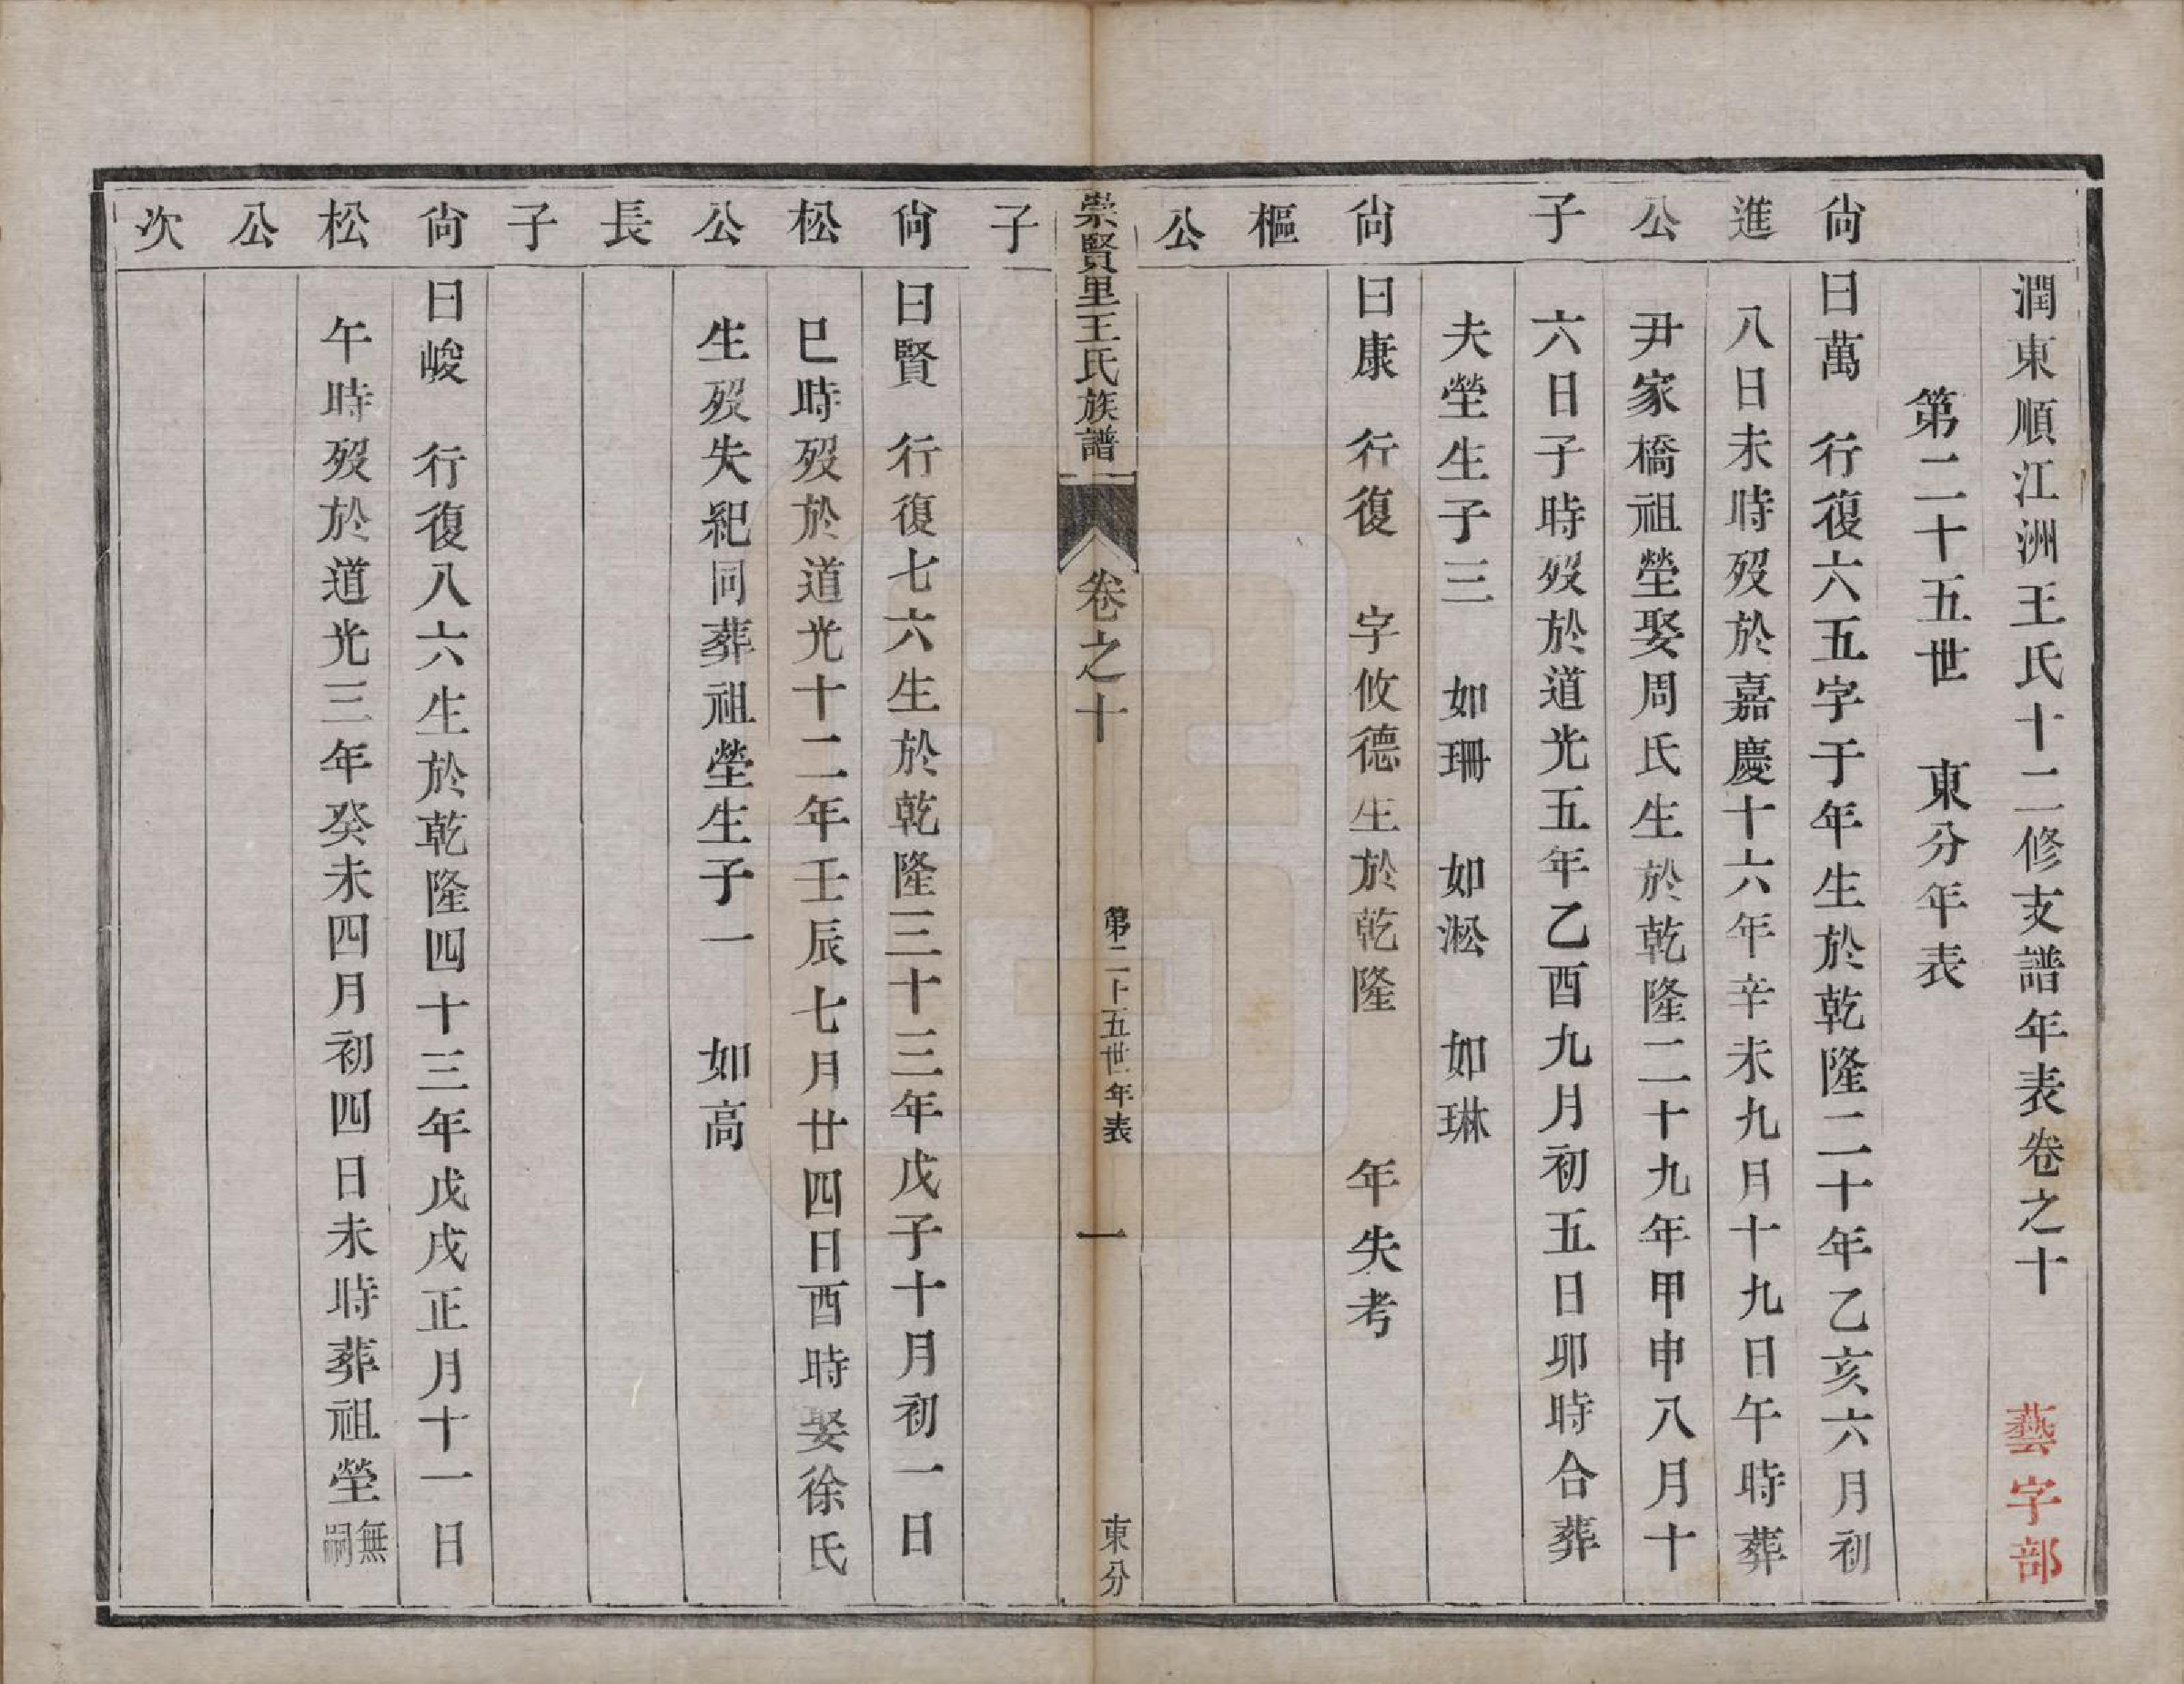 潤東順江洲王氏十二修支譜年表卷之十　藝字部
第二十五世　東分年表
尙　曰萬　行復六五字于年生於乾隆二十年乙亥六月初
進　八日未時歿於嘉慶十六年辛未九月十九日午時葬
公　尹家橋祖塋娶周氏生於乾隆二十九年甲申八月十
子　六日子時歿於道光五年乙酉九月初五日卯時合葬
夫塋生子三　如珊　如淞　如琳
尙　曰康　行復　字攸德生於乾隆　年失考
樞
公
崇賢里王氏族譜　卷之十　第二十五世年表　一　東分
子
尙　曰賢　行復七六生於乾隆三十三年戊子十月初一日
松　巳時歿於道光十二年壬辰七月廿四日酉時娶徐氏
公　生歿失紀同葬祖塋生子一　如高
長
子
尙　曰峻　行復八六生於乾隆四十三年戊戌正月十一日
松　午時歿於道光三年癸未四月初四日未時葬祖塋無嗣
公
次